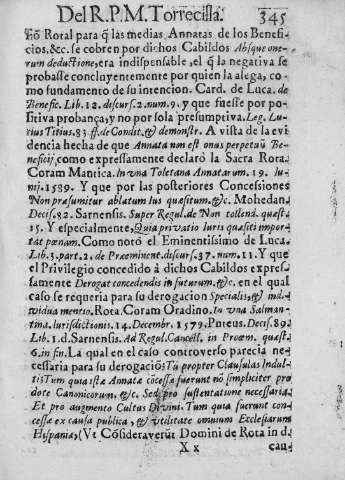 Del R. P. M. Torrecilla. 345
ciõ Rotal para q̃ las medias Annatas de los Benefi-
cios, &c. se cobren por dichos Cabildos Absque one-
rum deductione, era indispensable, el q̃ la negativa se
probasse concluyentemente por quien la alega, co-
mo fundamento de su intencion. Card. de Luca. de
Benefic. Lib. 12. discurs. 2. num. 9. y que fuesse por po-
sitiva probança, y no por sola presumptiva. Leg. Lu-
cius Titius. 83. ff. de Condit. & demonstr. A vista de la evi-
dencia hecha de que Annata non est onus perpetuũ Be-
neficij, como expressamente declarò la Sacra Rota.
Coram Mantica. In una Toletana Annatarum. 19. Iu-
nij. 1589. Y que por las posteriores Concesiones
Non præsumitur ablatum Ius quæsitum, &c. Mohedan.
Decis. 82. Sarnensis. Super Regul. de Non tollend. quæst.
15. Y especialmente, Quia privatio Iuris quæsiti impor-
tat pœnam. Como notò el Eminentissimo de Luca.
Lib. 3. part. 2. de Præeminent. discurs. 37. num. 11. Y que
el Privilegio concedido à dichos Cabildos expres-
samente Derogat concedendis in futurum, &c. en el qual
caso se requeria para su derogacion Specialis, & indi-
vidua mentio. Rota. Coram Oradino. In una Salman-
tina. Iurisdictionis. 14. Decembr. 1579. Puteus. Decis. 89.
Lib. 1. d. Sarnensis. Ad Regul. Cancell. in Proœm. quæst.
6. in fin. La qual en el caso controverso parecia ne-
cessaria para su derogaciõ: Tũ propter Clausulas Indul-
ti: Tum quia istæ Annatæ cõcessæ fuerunt nõ simpliciter pro
dote Canonicorum, &c. Sed pro sustentatione necessaria
Et pro augmento Cultus Divini. Tum quia fuerunt con-
cessæ ex causa publica, & utilitate omnium Ecclesiarum
Hispania, (Vt Cõsideraverũt Domini de Rota in d.
X x cau-